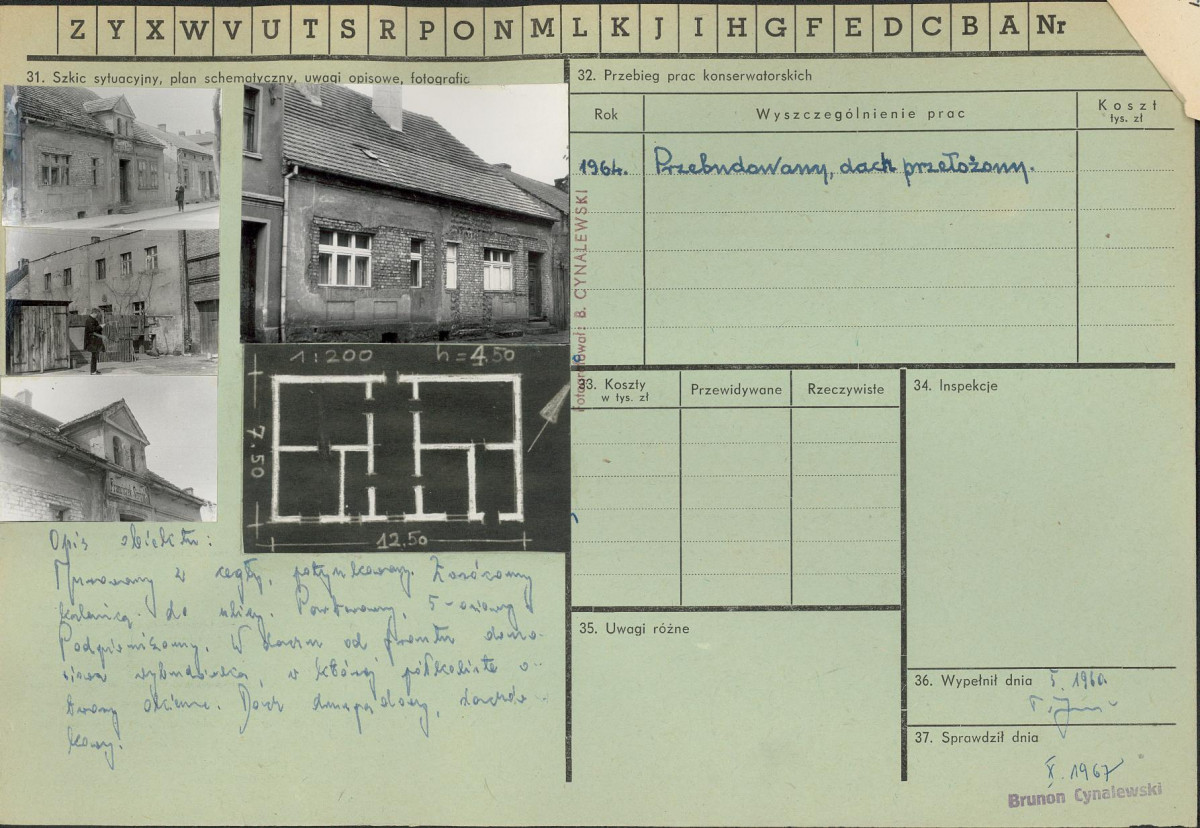 Z Y X W V U T S R P O N M L K J I H G F E D C B A Nr
31. Szkic sytuacyjny, plan schematyczny, uwagi opisowe, fotografie
1:200 h=4.50
7.50
12.50
Opis obiektu:
Murowany z cegły, potynkowany. Zwrócony
kalenicą do ulicy. Parterowy, 5-osiowy
Podpiwniczony. W dachu od frontu
wybudówka, w której półkoliste o-
twory okienne. Dach dwuspadowy, dachów-
kowy.
fotografował: B. CYNALEWSKI
32. Przebieg prac konserwatorskich
Rok Wyszczególnienie prac Koszt
tys. zł
1964. Przebudowany, dach przełożony.
33. Koszty
w tys. zł
Przewidywane Rzeczywiste
34. Inspekcje
35. Uwagi różne
36. Wypełnił dnia 5. 1960.
37. Sprawdził dnia
X. 1967
Brunon Cynalewski